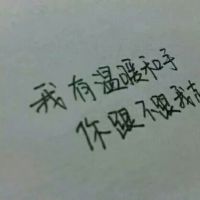 我有温暖和手
你跟不跟我